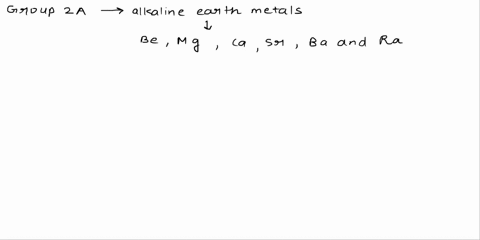 Group 2A → alkaline earth metals
↓
Be, Mg, Ca, Sr, Ba and Ra